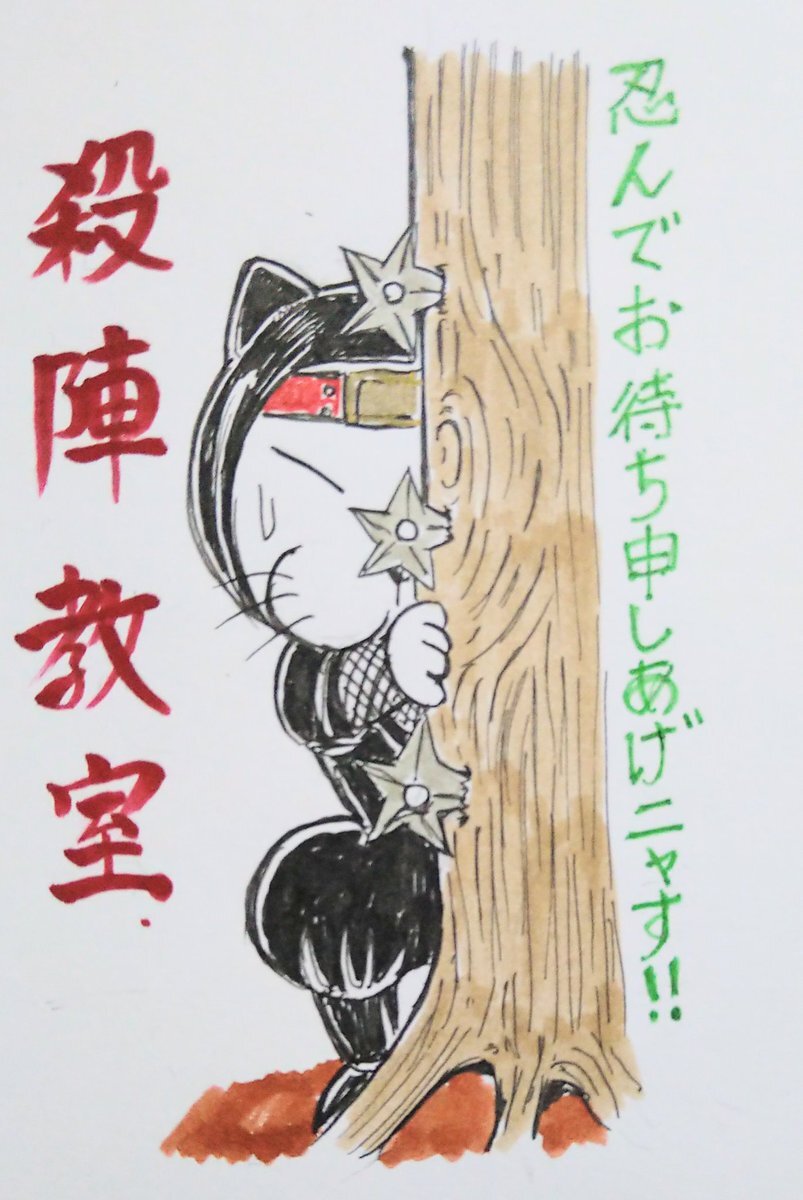 忍んでお待ち申しあげニャす!!
殺陣教室.